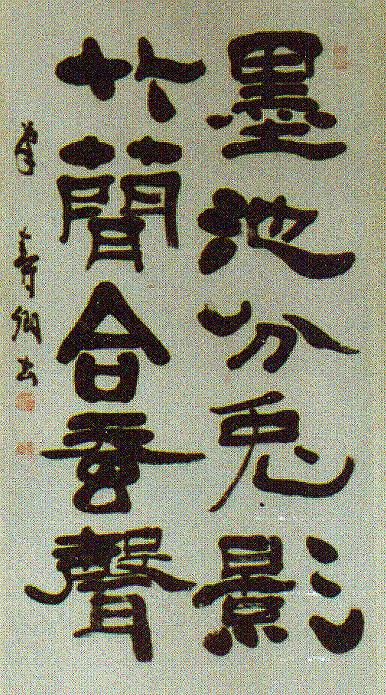 墨池分兔影
竹簡合蚕聲
壽卿書